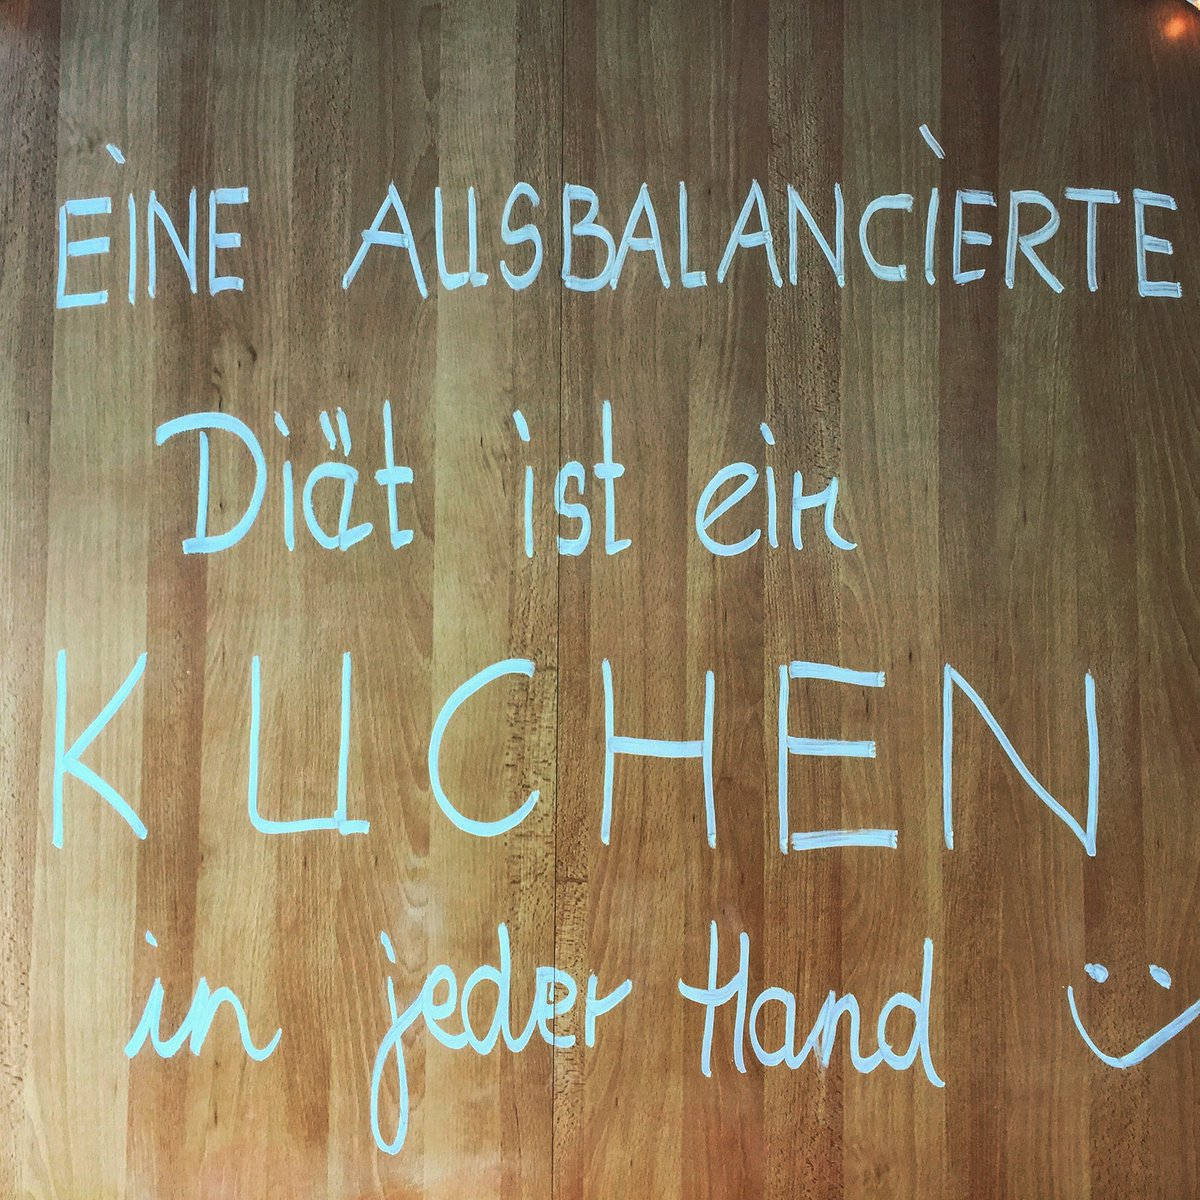 EINE AUSBALANCIERTE
Diät ist ein
KUCHEN
in jeder Hand